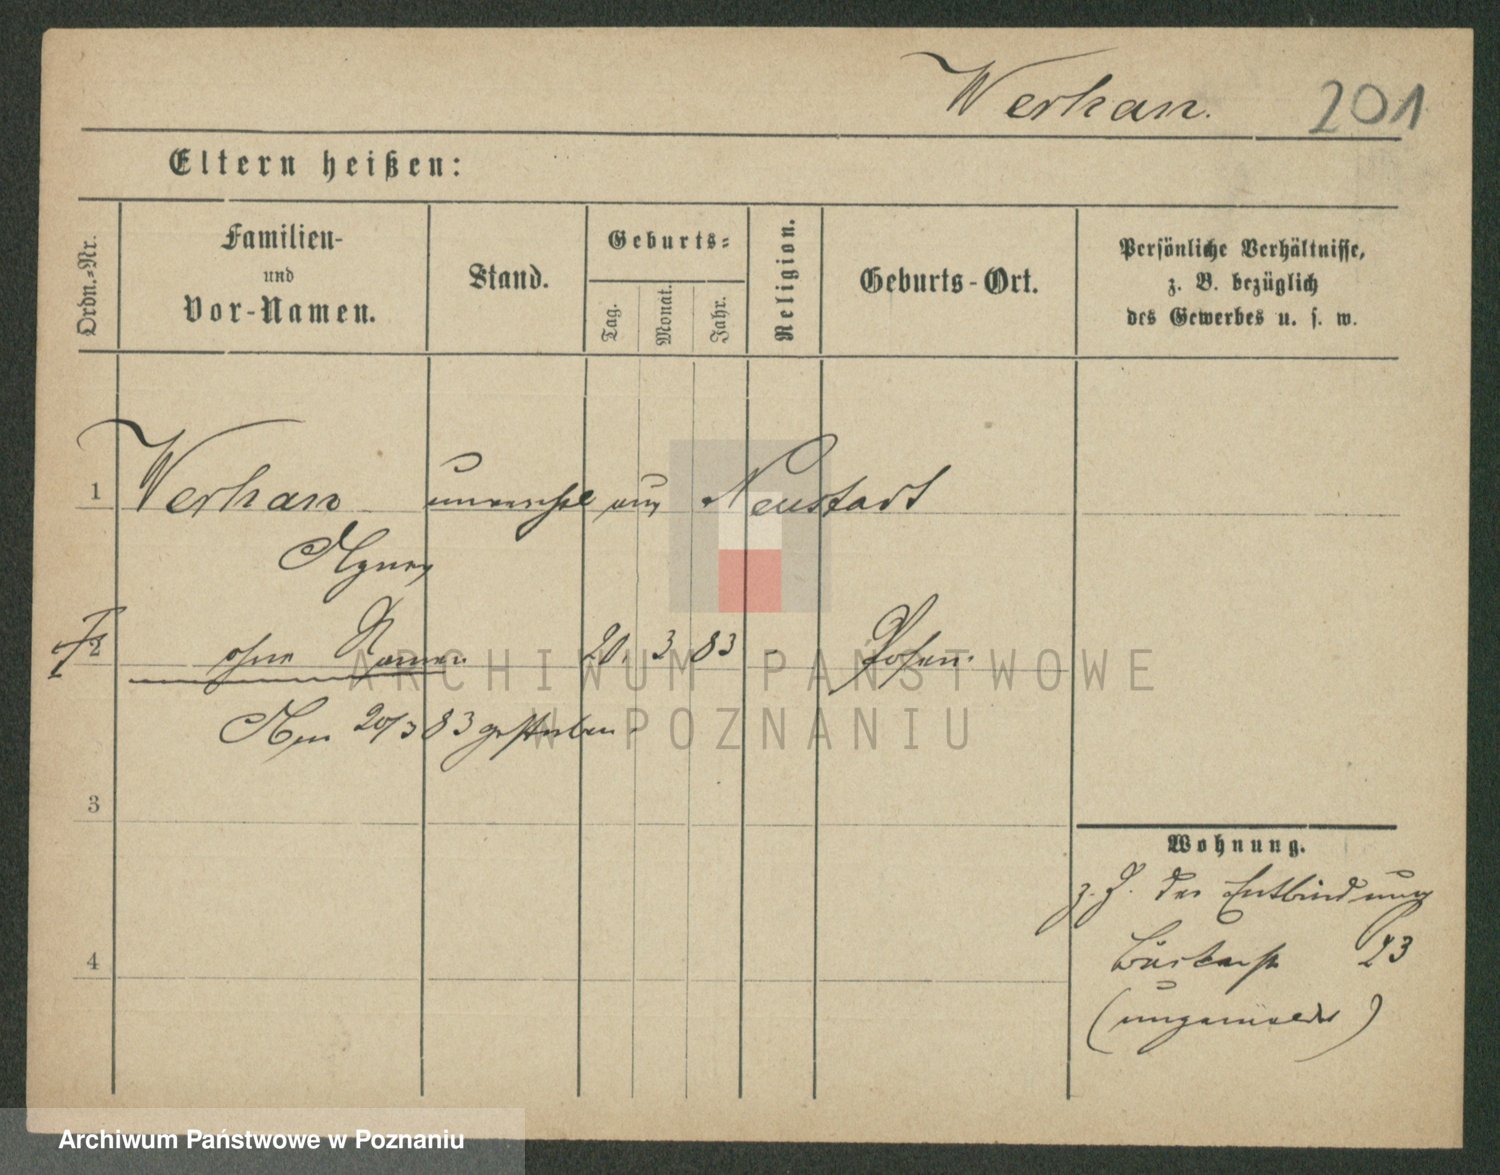 Werhan.
201
Eltern heißen:
Ordn.-Nr.
Familien-
und
Vor-Namen.
Stand.
Geburts-
Tag.
Monat.
Jahr.
Religion.
Geburts-Ort.
Persönliche Verhältnisse,
z. B. bezüglich
des Gewerbes u. s. w.
1 Werhan unverehel aus Neustadt
Agnes
† 2 ohne Namen 20. 3 83 - Posen.
Am 20/3 83 gestorben.
3
4
Wohnung.
z. Z. der Entbindung
23
(ungemeldet)
ARCHIWUM PAŃSTWOWE
W POZNANIU
Archiwum Państwowe w Poznaniu